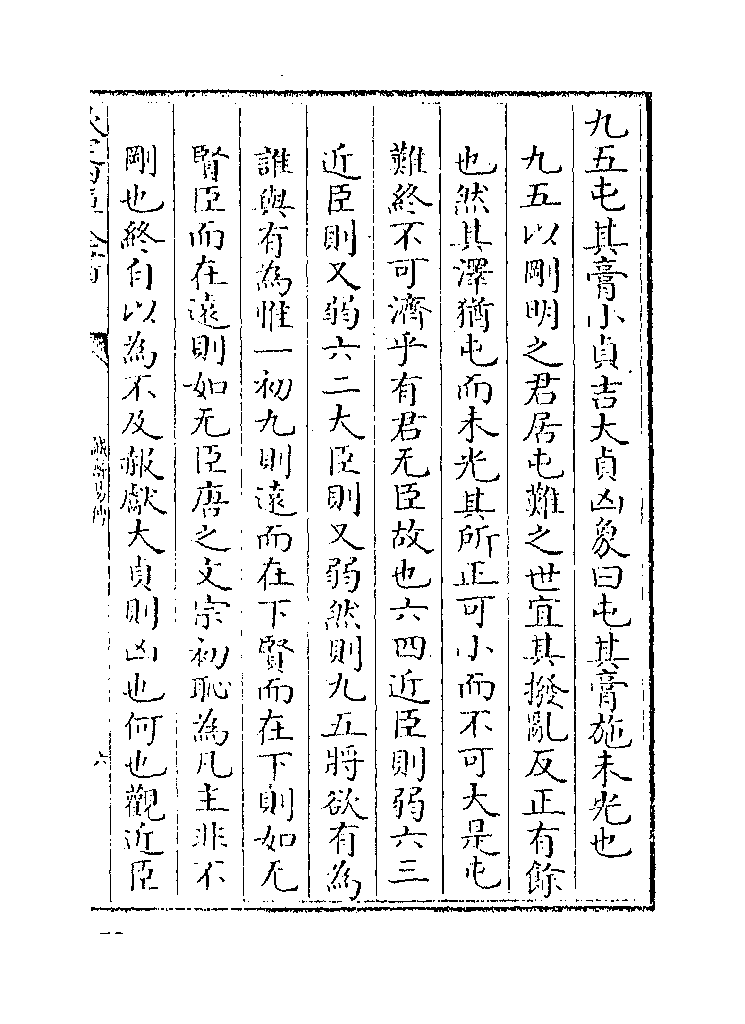 九五屯其膏小貞吉大貞凶象曰屯其膏施未光也
九五以剛明之君居屯難之世宜其撥亂反正有餘
也然其澤猶屯而未光其所正可小而不可大是屯
難終不可濟乎有君无臣故也六四近臣則弱六三
近臣則又弱六二大臣則又弱然則九五將欲有為
誰與有為惟一初九則遠而在下賢而在下則如无
賢臣而在遠則如无臣唐之文宗初恥為凡主非不
剛也終自以為不及赧獻大貞則凶也何也觀近臣
誠齋易傳
六